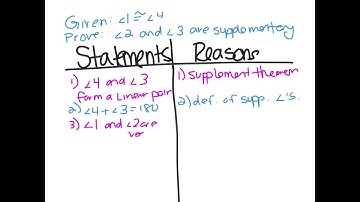 Given: ∠1 ≅ ∠4
Prove: ∠2 and ∠3 are supplementary
Statements Reasons
1) ∠4 and ∠3
form a Linear pair
1) supplement theorem
2) ∠4 + ∠3 = 180
2) def. of supp. ∠'s.
3) ∠1 and ∠2 are
ver